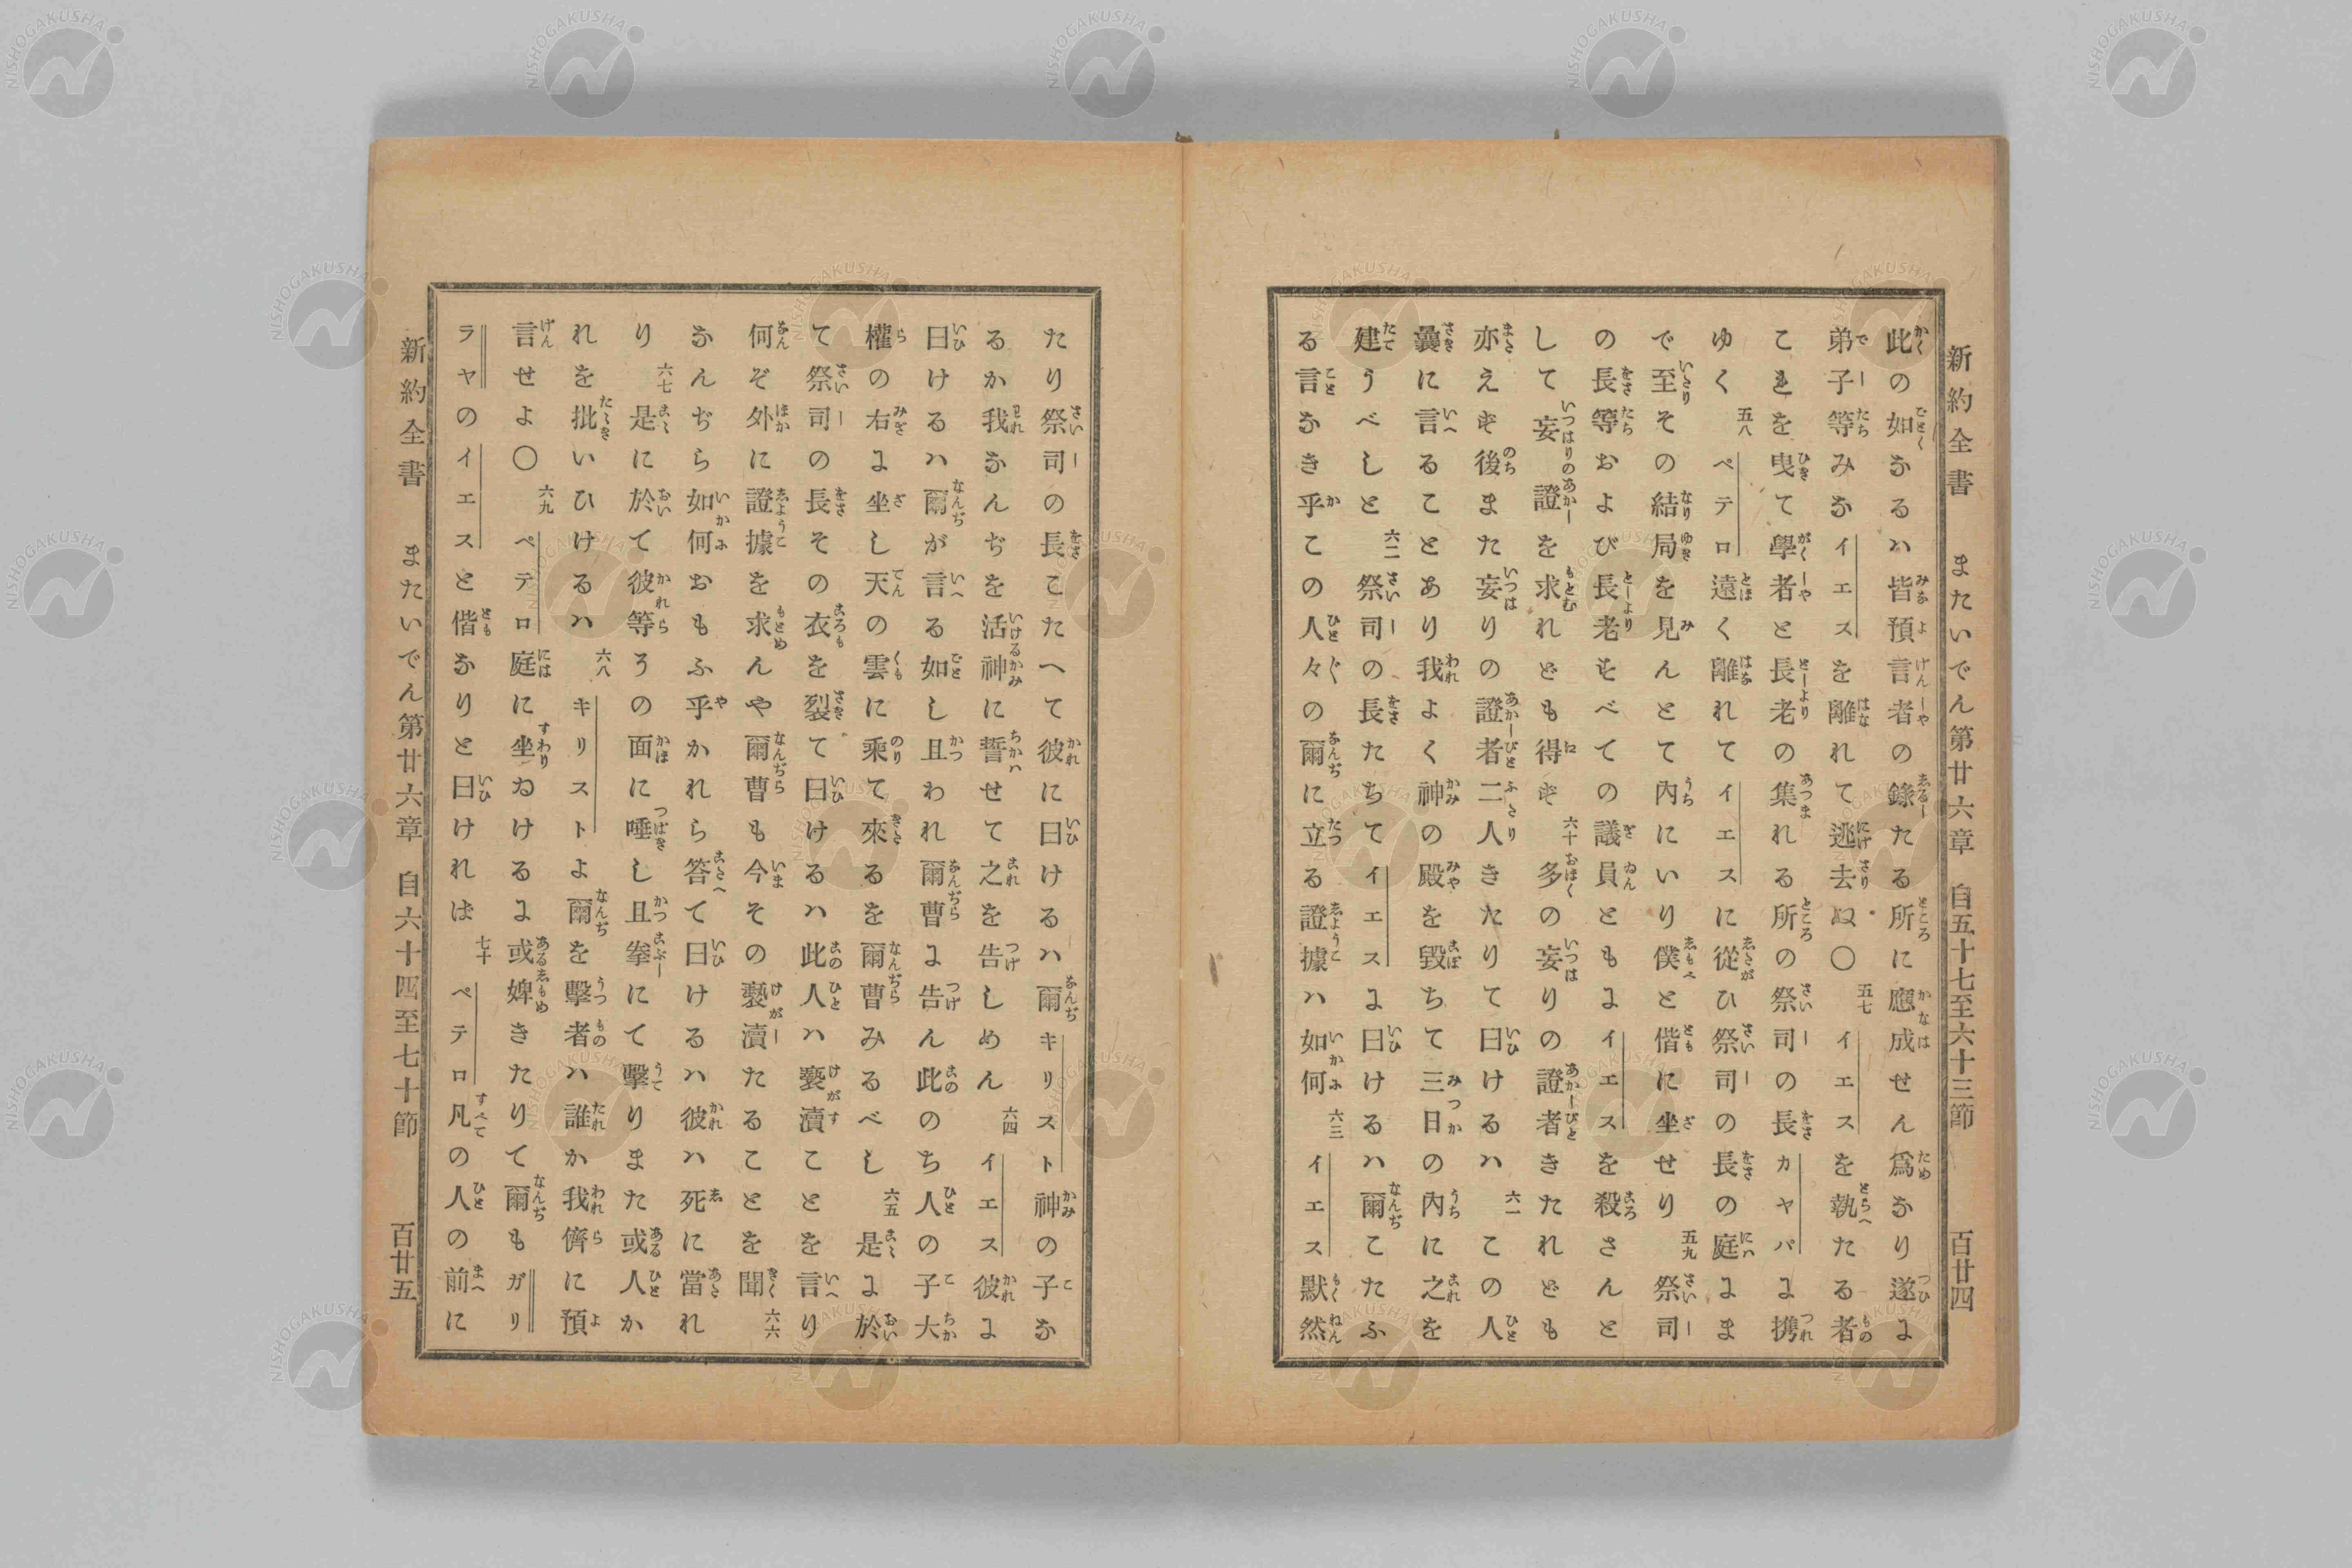 新約全書 またいでん第廿六章 自五十七至六十三節 百廿四
此の如なるハ皆預言者の錄たる所に應成せん爲なり遂に
弟子等みなイエスを離れて逃去ぬ〇 五七 イエスを執たる者
これを曳て學者と長老の集れる所の祭司の長カヤパに携
ゆく 五八 ペテロ遠く離れてイエスに從ひ祭司の長の庭にま
で至その結局を見んとて內にいり僕と偕に坐せり 五九 祭司
の長等および長老すべての議員ともにイエスを殺さんと
して妄證を求れども得ず 六十 多の妄りの證者きたれども
亦えず後また妄りの證者二人きたりて曰けるハ 六一 この人
曩に言ることあり我よく神の殿を毀ちて三日の內に之を
建うべしと 六二 祭司の長たちてイエスに曰けるハ爾こたふ
る言なき乎この人々の爾に立る證據ハ如何 六三 イエス默然
たり祭司の長こたへて彼に曰けるハ爾キリスト神の子な
るか我なんぢを活神に誓せて之を告しめん 六四 イエス彼に
曰けるハ爾が言る如し且われ爾曹に告ん此のち人の子大
權の右に坐し天の雲に乘て來るを爾曹みるべし 六五 是に於
て祭司の長その衣を裂て曰けるハ此人ハ褻瀆ことを言り
何ぞ外に證據を求んや爾曹も今その褻瀆たることを聞 六六
なんぢら如何おもふ乎かれら答て曰けるハ彼ハ死に當れ
り 六七 是に於て彼等うの面に唾し且拳にて擊りまた或人か
れを批いひけるハ 六八 キリストよ爾を擊者ハ誰か我儕に預
言せよ〇 六九 ペテロ庭に坐ゐけるに或婢きたりて爾もガリ
ラヤのイエスと偕なりと曰ければ 七十 ペテロ凡の人の前に
新約全書 またいでん第廿六章 自六十四至七十節 百廿五
NISHOGAKUSHA